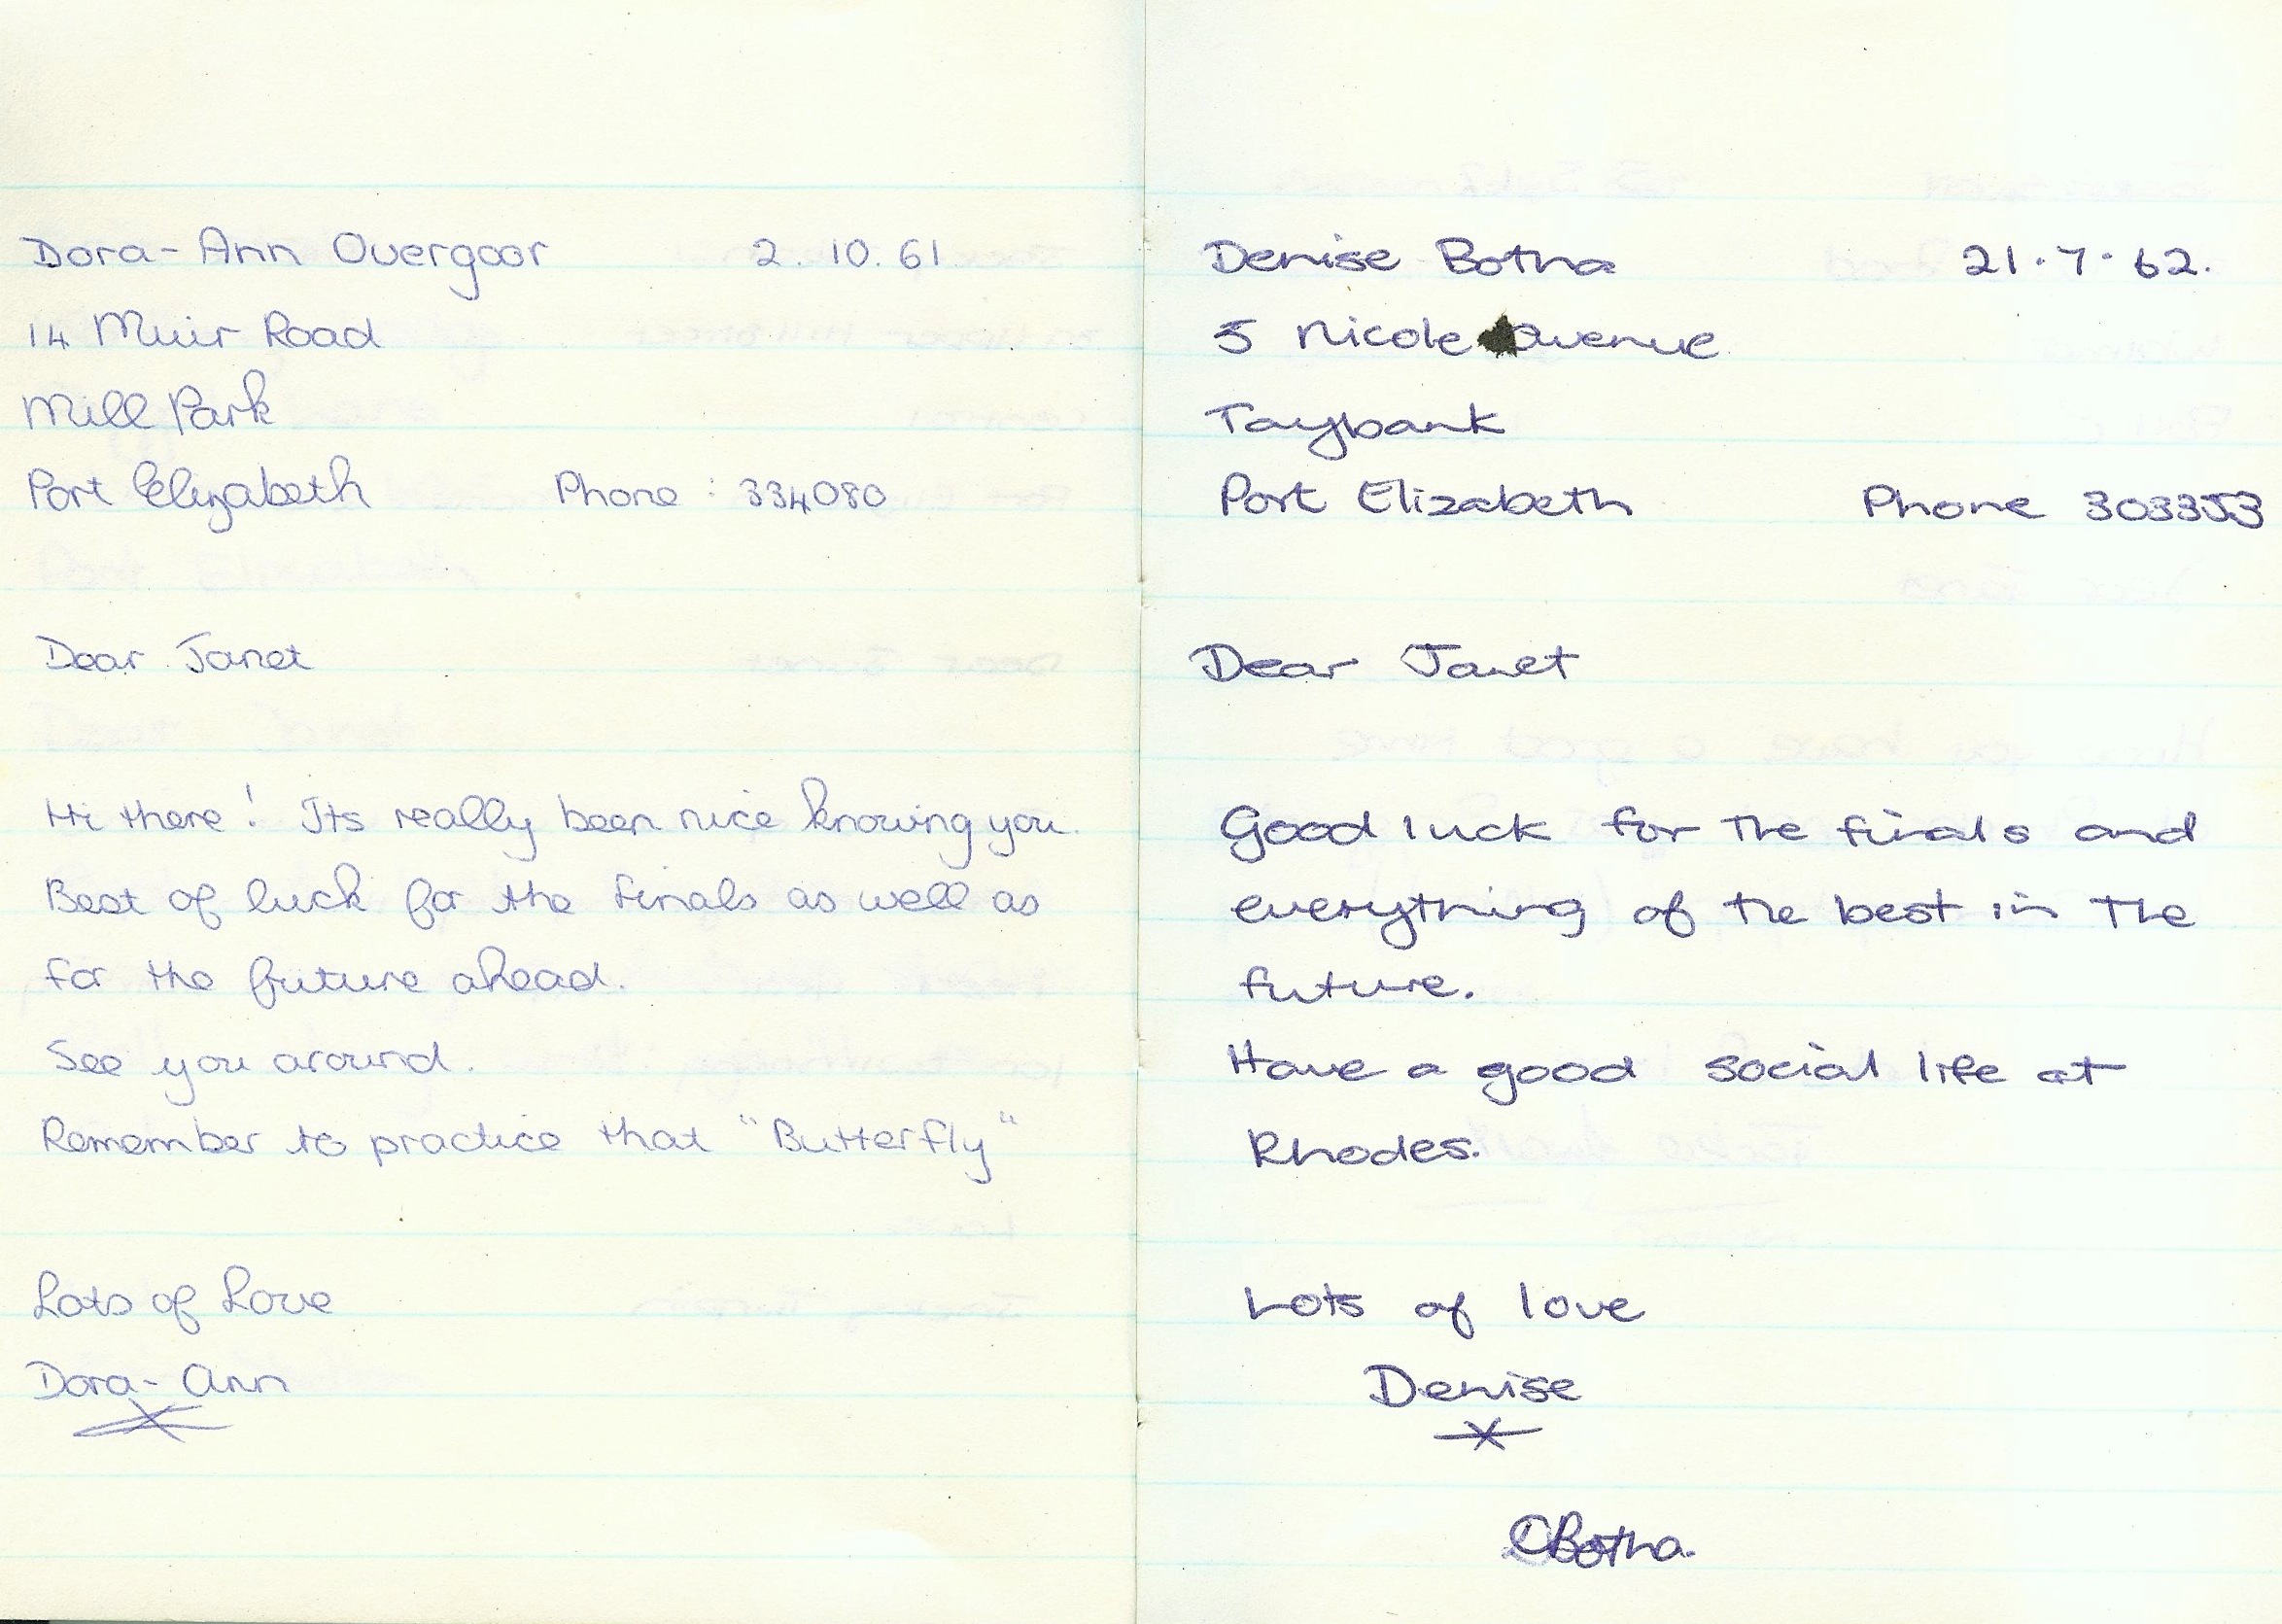 Dora-Ann Overgoor 2. 10. 61.
14 Muir Road
Mill Park
Port Elizabeth Phone : 334080
Dear Janet
Hi there! Its really been nice knowing you.
Best of luck for the finals as well as
for the future ahead.
See you around.
Remember to practice that "Butterfly"
Lots of Love
Dora-Ann
X
Denise Botha 21.7.62.
5 Nicole Avenue
Taybank
Port Elizabeth Phone 303353
Dear Janet
Good luck for the finals and
everything of the best in the
future.
Have a good social life at
Rhodes.
Lots of love
Denise
X
Botha.